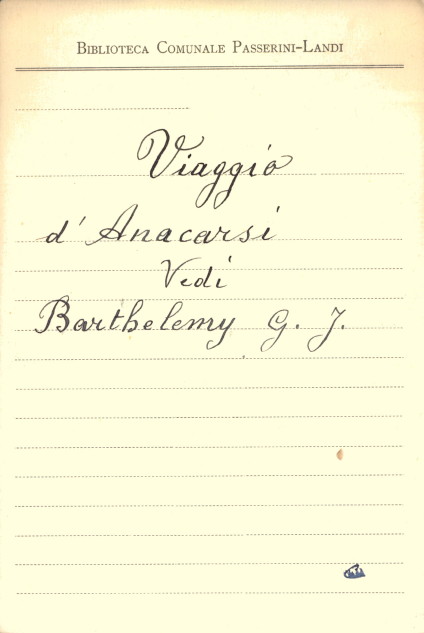 Biblioteca Comunale Passerini-Landi
Viaggio
d' Anacarsi
Vedi
Barthelemy G. J.